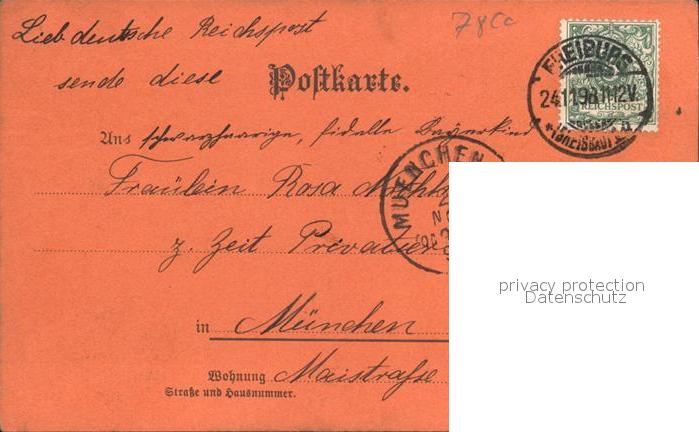 78Cc
Lieb deutsche Reichspost
sende diese
Postkarte.
FREIBURG
24.11.98.11-12V.
REICHSPOST
(BREISGAU)
An's schwarzhaarige, fidelle Bayerkind
MUENCHEN
Fräulein Rosa
z. Zeit Privatier
in München
Wohnung Maistraße
Straße und Hausnummer.
privacy protection
Datenschutz